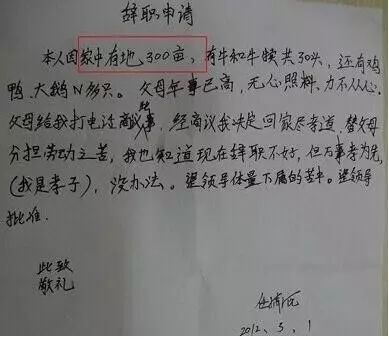 辞职申请
本人因家中有地300亩，有牛和牛犊共30头，还有鸡
鸭、大鹅N多只。父母年事已高，无心照料，力不从心。
父母给我打电话商议此事，经商议我决定回家尽孝道，替父母
分担劳动之苦，我也知道现在辞职不好，但万事孝为先
（我是孝子），没办法。望领导体量下属的苦中。望领导
批准.
此致
敬礼
2012、3、1